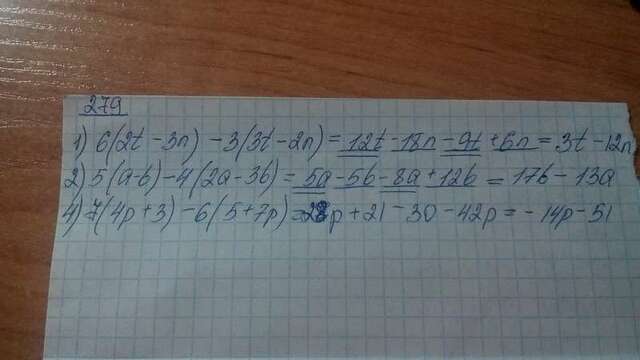 279
1) 6(2t - 3n) - 3(3t - 2n) = 12t - 18n - 9t + 6n = 3t - 12n
2) 5(a-b) - 4(2a - 3b) = 5a - 5b - 8a + 12b = 17b - 13a
4) 7(4p + 3) - 6(5 + 7p) = 28p + 21 - 30 - 42p = - 14p - 51